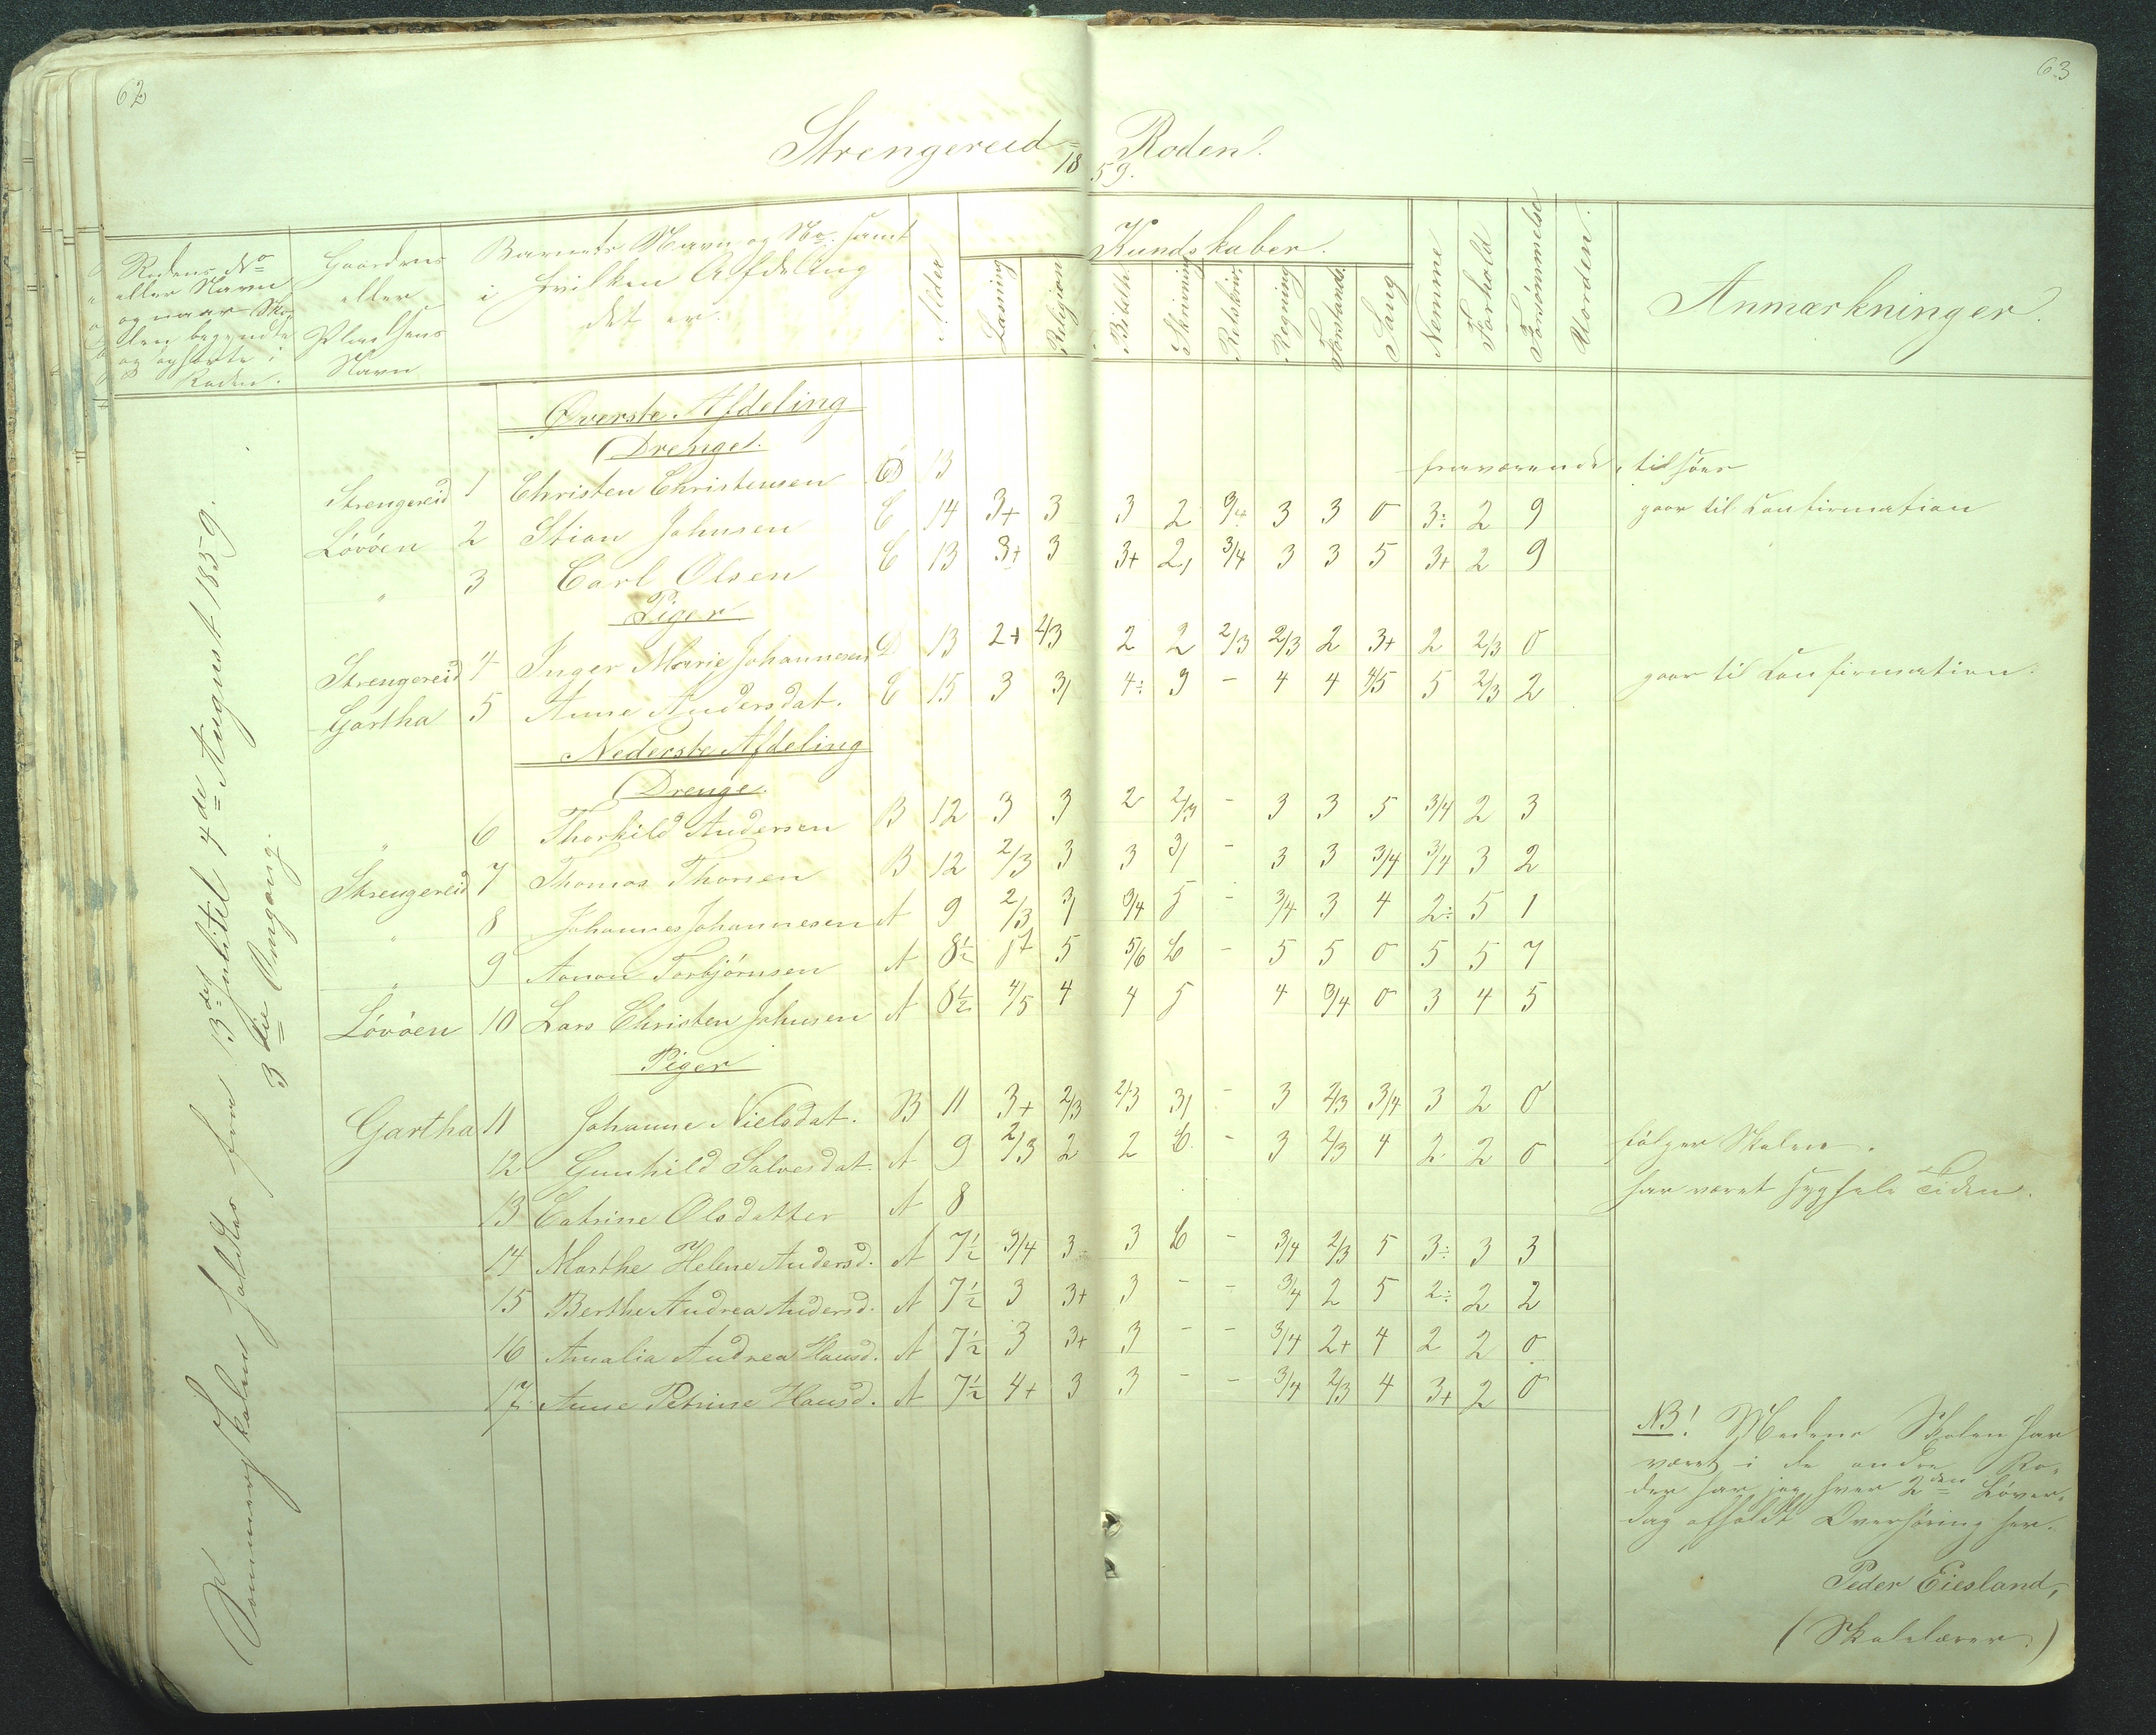 62
63
Strengereid- Roden.
1859.
Rodens No
eller Navn
og naar Sko-
len begyndte
og ophørte i
Roden.
Gaardens
eller
Pladsens
Navn
Barnets Navn og No. samt
i hvilken Afdeling
det er.
Alder
Kundskaber.
Læsning
Religion
Bibelh.
Skrivning
Retskriv.
Regning
Forstands.
Sang
Nemme
Forhold
Forsømmelse
Uorden.
Anmærkninger.
Sommerskolen holdtes fra 13de Juli til 4de August 1859.
3die Omgang.
Øverste Afdeling
Drenge.
Strengereid 1 Christen Christensen D 13 fraværende, tilsøes
Lövöen 2 Stian Johnsen C 14 3+ 3 3 2 3/4 3 3 0 3÷ 2 9 gaar til Confirmation
" 3 Carl Olsen C 13 3+ 3 3+ 2, 3/4 3 3 5 3+ 2 9
Piger
Strengereid 4 Inger Marie Johannesen D 13 2+ 2/3 2 2 2/3 2/3 2 3+ 2 2/3 0
Gartha 5 Anne Andersdat. C 15 3 3/ 4÷ 3 - 4 4 4/5 5 2/3 2 gaar til Confirmation.
Nederste Afdeling
Drenge.
" 6 Thorkild Andersen B 12 3 3 2 2/3 - 3 3 5 3/4 2 3
Strengereid 7 Thomas Thorsen B 12 2/3 3 3 3/ - 3 3 3/4 3/4 3 2
" 8 Johannes Johannesen A 9 2/3 3/ 3/4 5 - 3/4 3 4 2÷ 5 1
" 9 Aanon Torbjörnsen A 8½ 5 5/6 6 - 5 5 0 5 5 7
Lövöen 10 Lars Christen Johnsen A 8½ 4/5 4 4 5 4 3/4 0 3 4 5
Piger
Gartha 11 Johanne Nielsdat. B 11 3+ 2/3 2/3 3/ - 3 2/3 3/4 3 2 0
12 Gunhild Salvesdat. A 9 2/3 2 2 6 - 3 2/3 4 2 2 0 følger Skolen.
13 Catrine Olsdatter A 8 har været syg hele Tiden.
14 Marthe Helene Andersd. A 7½ 3/4 3÷ 3 6 - 3/4 2/3 5 3÷ 3 3
15 Berthe Andrea Andersd. A 7½ 3 3+ 3 - - 3/4 2 5 2÷ 2 2
16 Amalia Andrea Hansd. A 7½ 3 3+ 3 - - 3/4 2+ 4 2 2 0
17 Anne Petrine Hansd. A 7½ 4+ 3 3 - - 3/4 2/3 4 3+ 2 0
NB! Medens Skolen har
været i de andre Ro-
der har jeg hver 2den Løver-
dag afholdt Overhøring her.
Peder Eiesland,
(Skolelærer.)